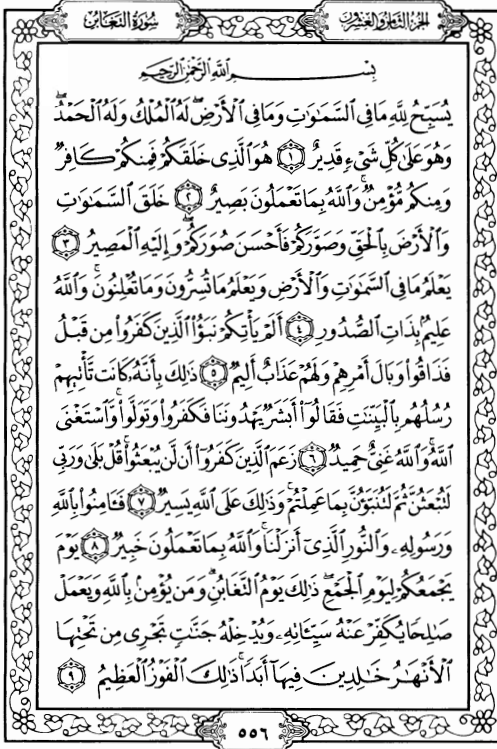 سُورَةُ التَّغَابُنِ
الجُزءُ الثَّامِنُ وَالعِشْرُونَ
بِسْمِ ٱللَّهِ ٱلرَّحْمَٰنِ ٱلرَّحِيمِ
يُسَبِّحُ لِلَّهِ مَا فِى ٱلسَّمَٰوَٰتِ وَمَا فِى ٱلْأَرْضِ ۖ لَهُ ٱلْمُلْكُ وَلَهُ ٱلْحَمْدُ ۖ
وَهُوَ عَلَىٰ كُلِّ شَىْءٍ قَدِيرٌ ١ هُوَ ٱلَّذِى خَلَقَكُمْ فَمِنكُمْ كَافِرٌ
وَمِنكُم مُّؤْمِنٌ ۚ وَٱللَّهُ بِمَا تَعْمَلُونَ بَصِيرٌ ٢ خَلَقَ ٱلسَّمَٰوَٰتِ
وَٱلْأَرْضَ بِٱلْحَقِّ وَصَوَّرَكُمْ فَأَحْسَنَ صُوَرَكُمْ ۖ وَإِلَيْهِ ٱلْمَصِيرُ ٣
يَعْلَمُ مَا فِى ٱلسَّمَٰوَٰتِ وَٱلْأَرْضِ وَيَعْلَمُ مَا تُسِرُّونَ وَمَا تُعْلِنُونَ ۚ وَٱللَّهُ
عَلِيمٌۢ بِذَاتِ ٱلصُّدُورِ ٤ أَلَمْ يَأْتِكُمْ نَبَؤُا۟ ٱلَّذِينَ كَفَرُوا۟ مِن قَبْلُ
فَذَاقُوا۟ وَبَالَ أَمْرِهِمْ وَلَهُمْ عَذَابٌ أَلِيمٌ ٥ ذَٰلِكَ بِأَنَّهُۥ كَانَت تَّأْتِيهِمْ
رُسُلُهُم بِٱلْبَيِّنَٰتِ فَقَالُوٓا۟ أَبَشَرٌ يَهْدُونَنَا فَكَفَرُوا۟ وَتَوَلَّوا۟ ۚ وَّٱسْتَغْنَى
ٱللَّهُ ۚ وَٱللَّهُ غَنِىٌّ حَمِيدٌ ٦ زَعَمَ ٱلَّذِينَ كَفَرُوٓا۟ أَن لَّن يُبْعَثُوا۟ ۚ قُلْ بَلَىٰ وَرَبِّى
لَتُبْعَثُنَّ ثُمَّ لَتُنَبَّؤُنَّ بِمَا عَمِلْتُمْ ۚ وَذَٰلِكَ عَلَى ٱللَّهِ يَسِيرٌ ٧ فَـَٔامِنُوا۟ بِٱللَّهِ
وَرَسُولِهِۦ وَٱلنُّورِ ٱلَّذِىٓ أَنزَلْنَا ۚ وَٱللَّهُ بِمَا تَعْمَلُونَ خَبِيرٌ ٨ يَوْمَ
يَجْمَعُكُمْ لِيَوْمِ ٱلْجَمْعِ ۖ ذَٰلِكَ يَوْمُ ٱلتَّغَابُنِ ۗ وَمَن يُؤْمِنۢ بِٱللَّهِ وَيَعْمَلْ
صَٰلِحًا يُكَفِّرْ عَنْهُ سَيِّـَٔاتِهِۦ وَيُدْخِلْهُ جَنَّٰتٍ تَجْرِى مِن تَحْتِهَا
ٱلْأَنْهَٰرُ خَٰلِدِينَ فِيهَآ أَبَدًا ۚ ذَٰلِكَ ٱلْفَوْزُ ٱلْعَظِيمُ ٩
٥٥٦